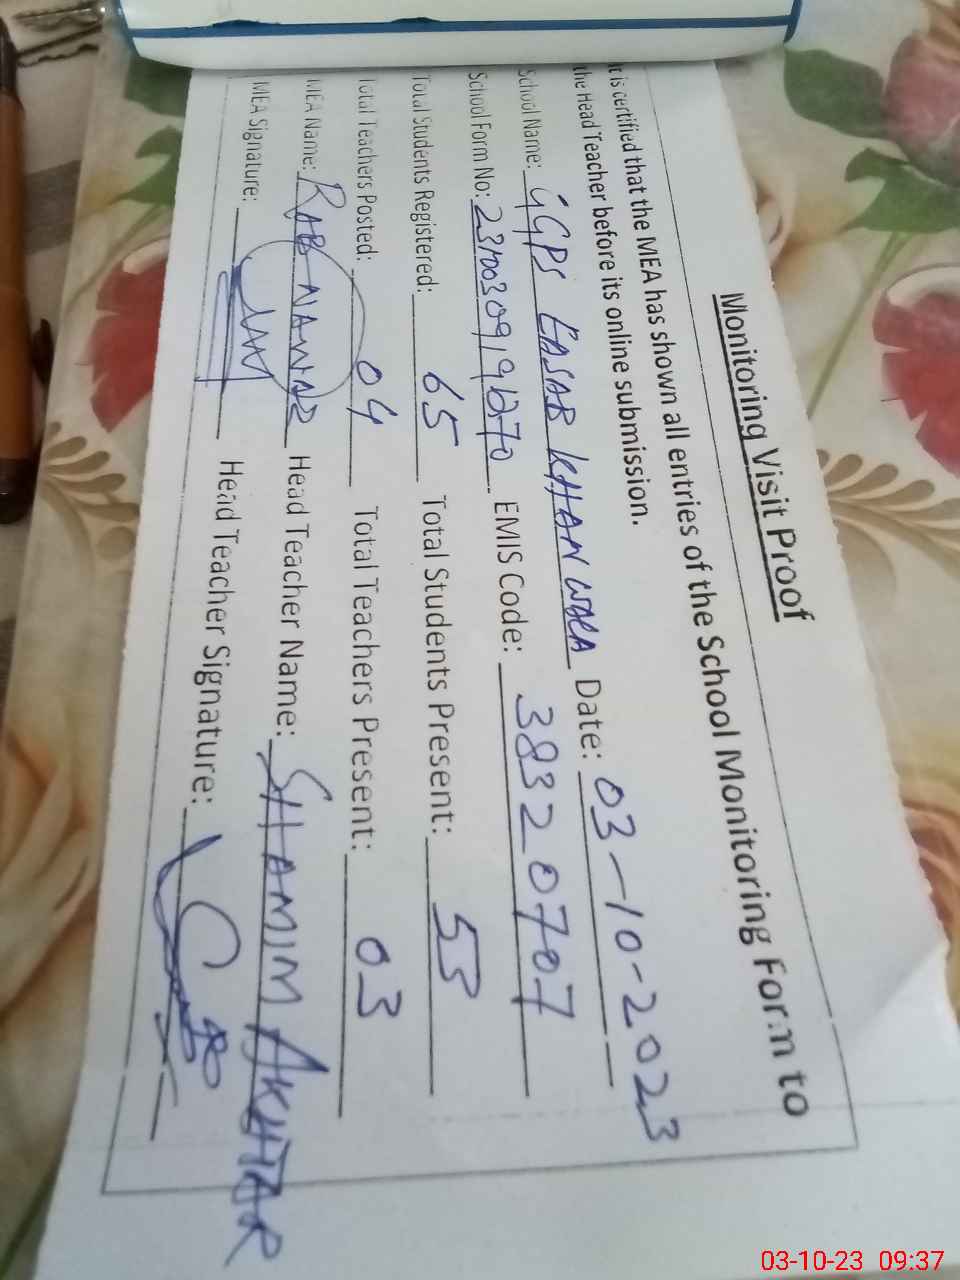 Monitoring Visit Proof
It is certified that the MEA has shown all entries of the School Monitoring Form to
the Head Teacher before its online submission.
School Name: GGPS EASAB KHAN WALA Date: 03-10-2023
School Form No: EMIS Code: 38320707
Total Students Registered: 65 Total Students Present: 53
Total Teachers Posted: 04 Total Teachers Present: 03
MEA Name: RAB NAWAZ Head Teacher Name: SHAMIM AKHTAR
MEA Signature: Head Teacher Signature:
03-10-23 09:37